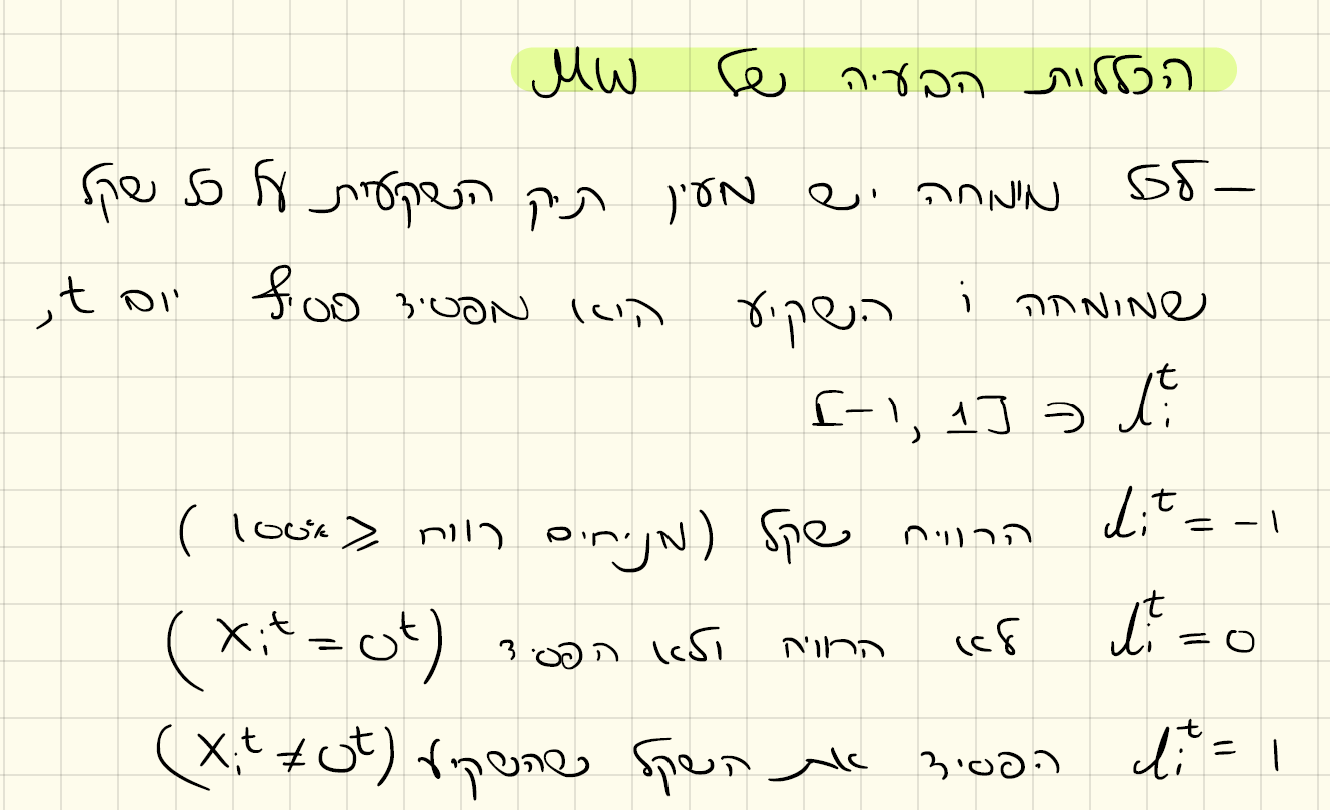 הכללות הבעיה של MW
– לכל מומחה יש מעין תיק השקעות על כל שקל
שמומחה i השקיע הוא מפסיד בסוף יום t,
l_i^t ∈ [-1, 1]
l_i^t = -1 הרוויח שקל (מניחים רווח ≤ 100%)
l_i^t = 0 לא הרוויח ולא הפסיד (x_i^t = 0^t)
l_i^t = 1 הפסיד את השקל שהשקיע (x_i^t ≠ 0^t)